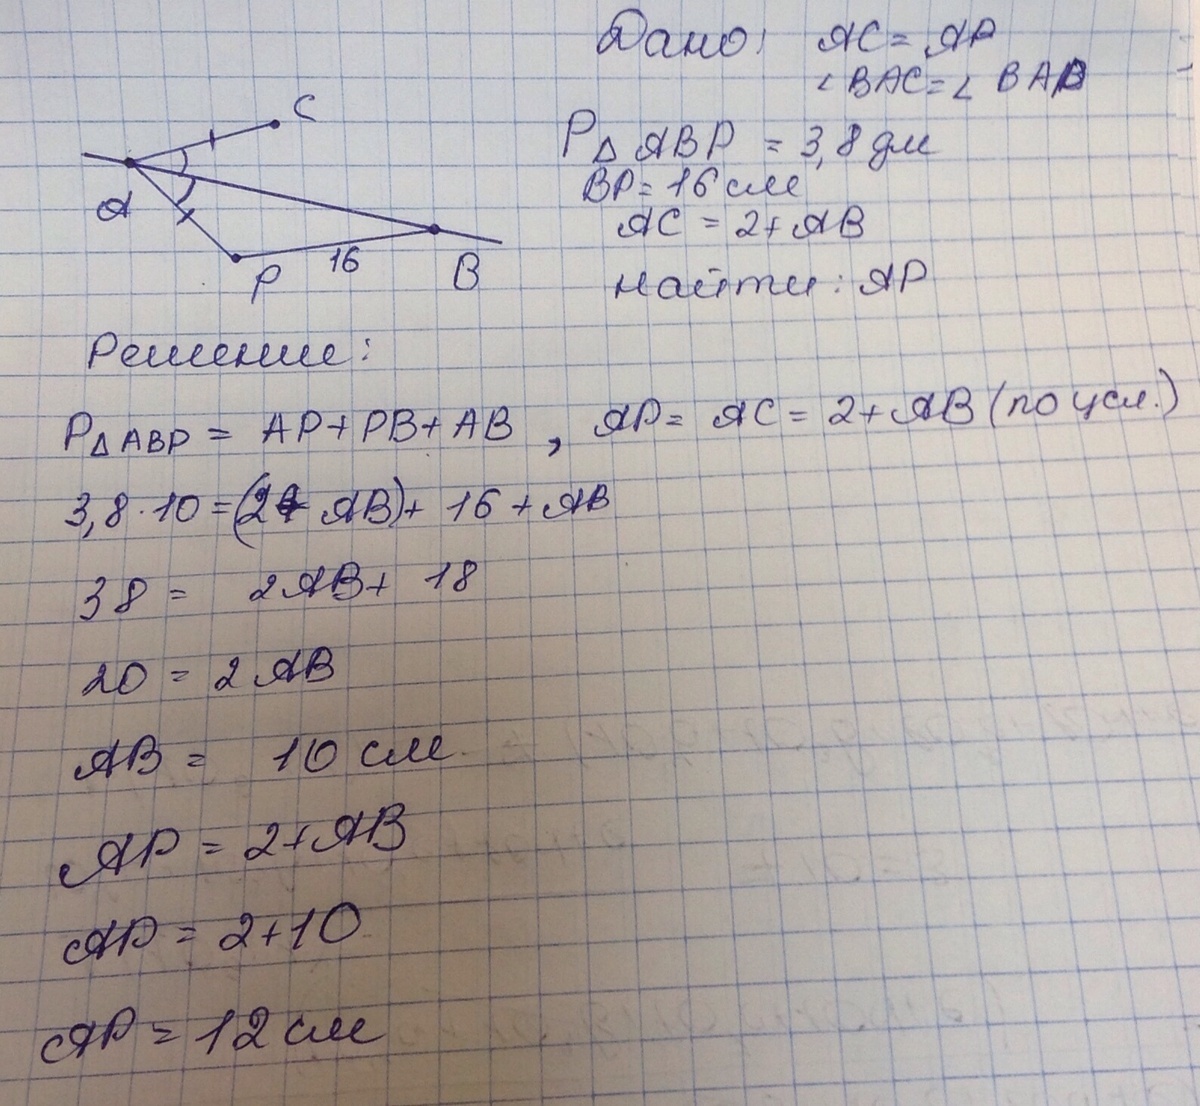 Дано: AC = AP
∠BAC = ∠BAP
P△ABP = 3,8 дм
BP = 16 см
AC = 2 + AB
Найти: AP
C
A
P
16
B
Решение:
P△ABP = AP + PB + AB , AP = AC = 2 + AB (по усл.)
3,8 · 10 = (2 + AB) + 16 + AB
38 = 2AB + 18
20 = 2AB
AB = 10 см.
AP = 2 + AB
AP = 2 + 10
AP = 12 см